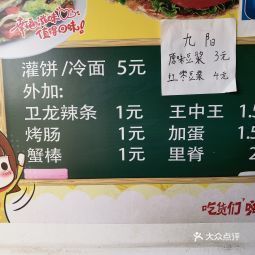 幸福滋味
值得回味!
九阳
原味豆浆 3元
红枣豆浆 4元
灌饼/冷面 5元
外加:
卫龙辣条 1元 王中王 1.5
烤肠 1元 加蛋 1.5
蟹棒 1元 里脊 2
吃货们
大众点评